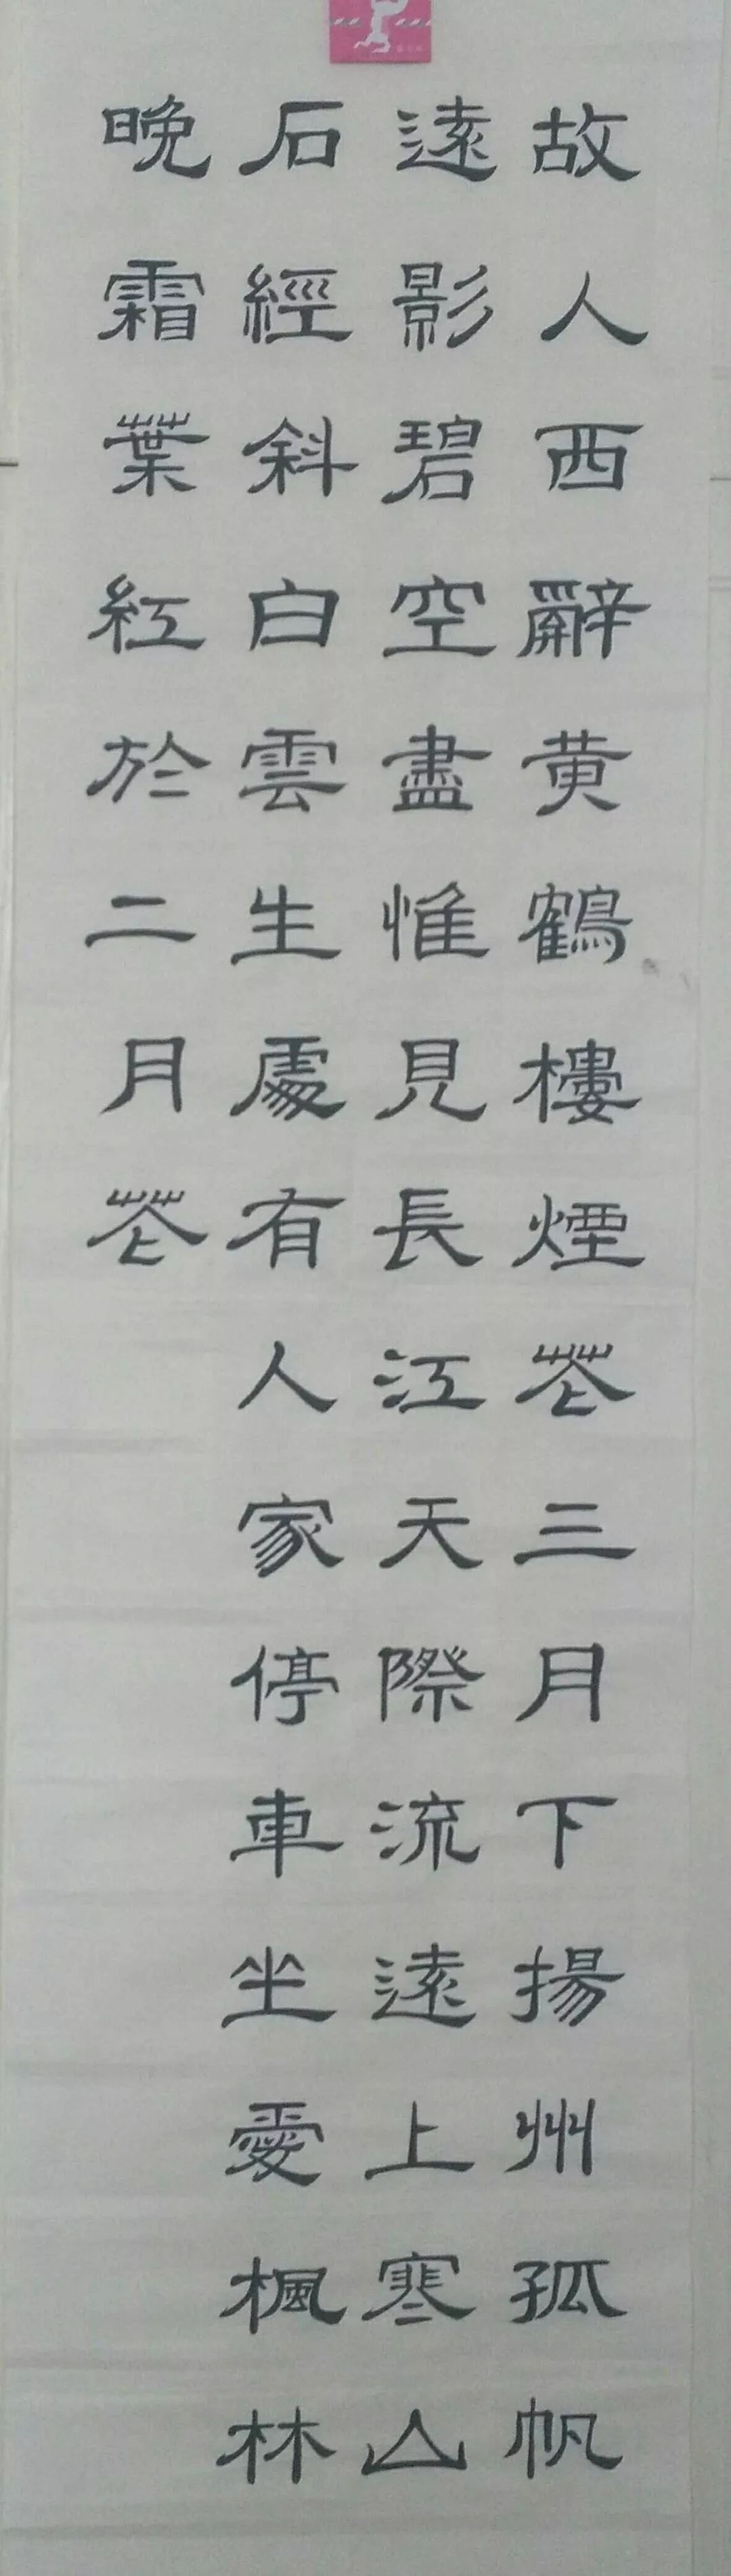 故人西辭黃鶴樓煙花三月下揚州孤帆
遠影碧空盡惟見長江天際流遠上寒山
石經斜白雲生處有人家停車坐愛楓林
晚霜葉紅於二月花